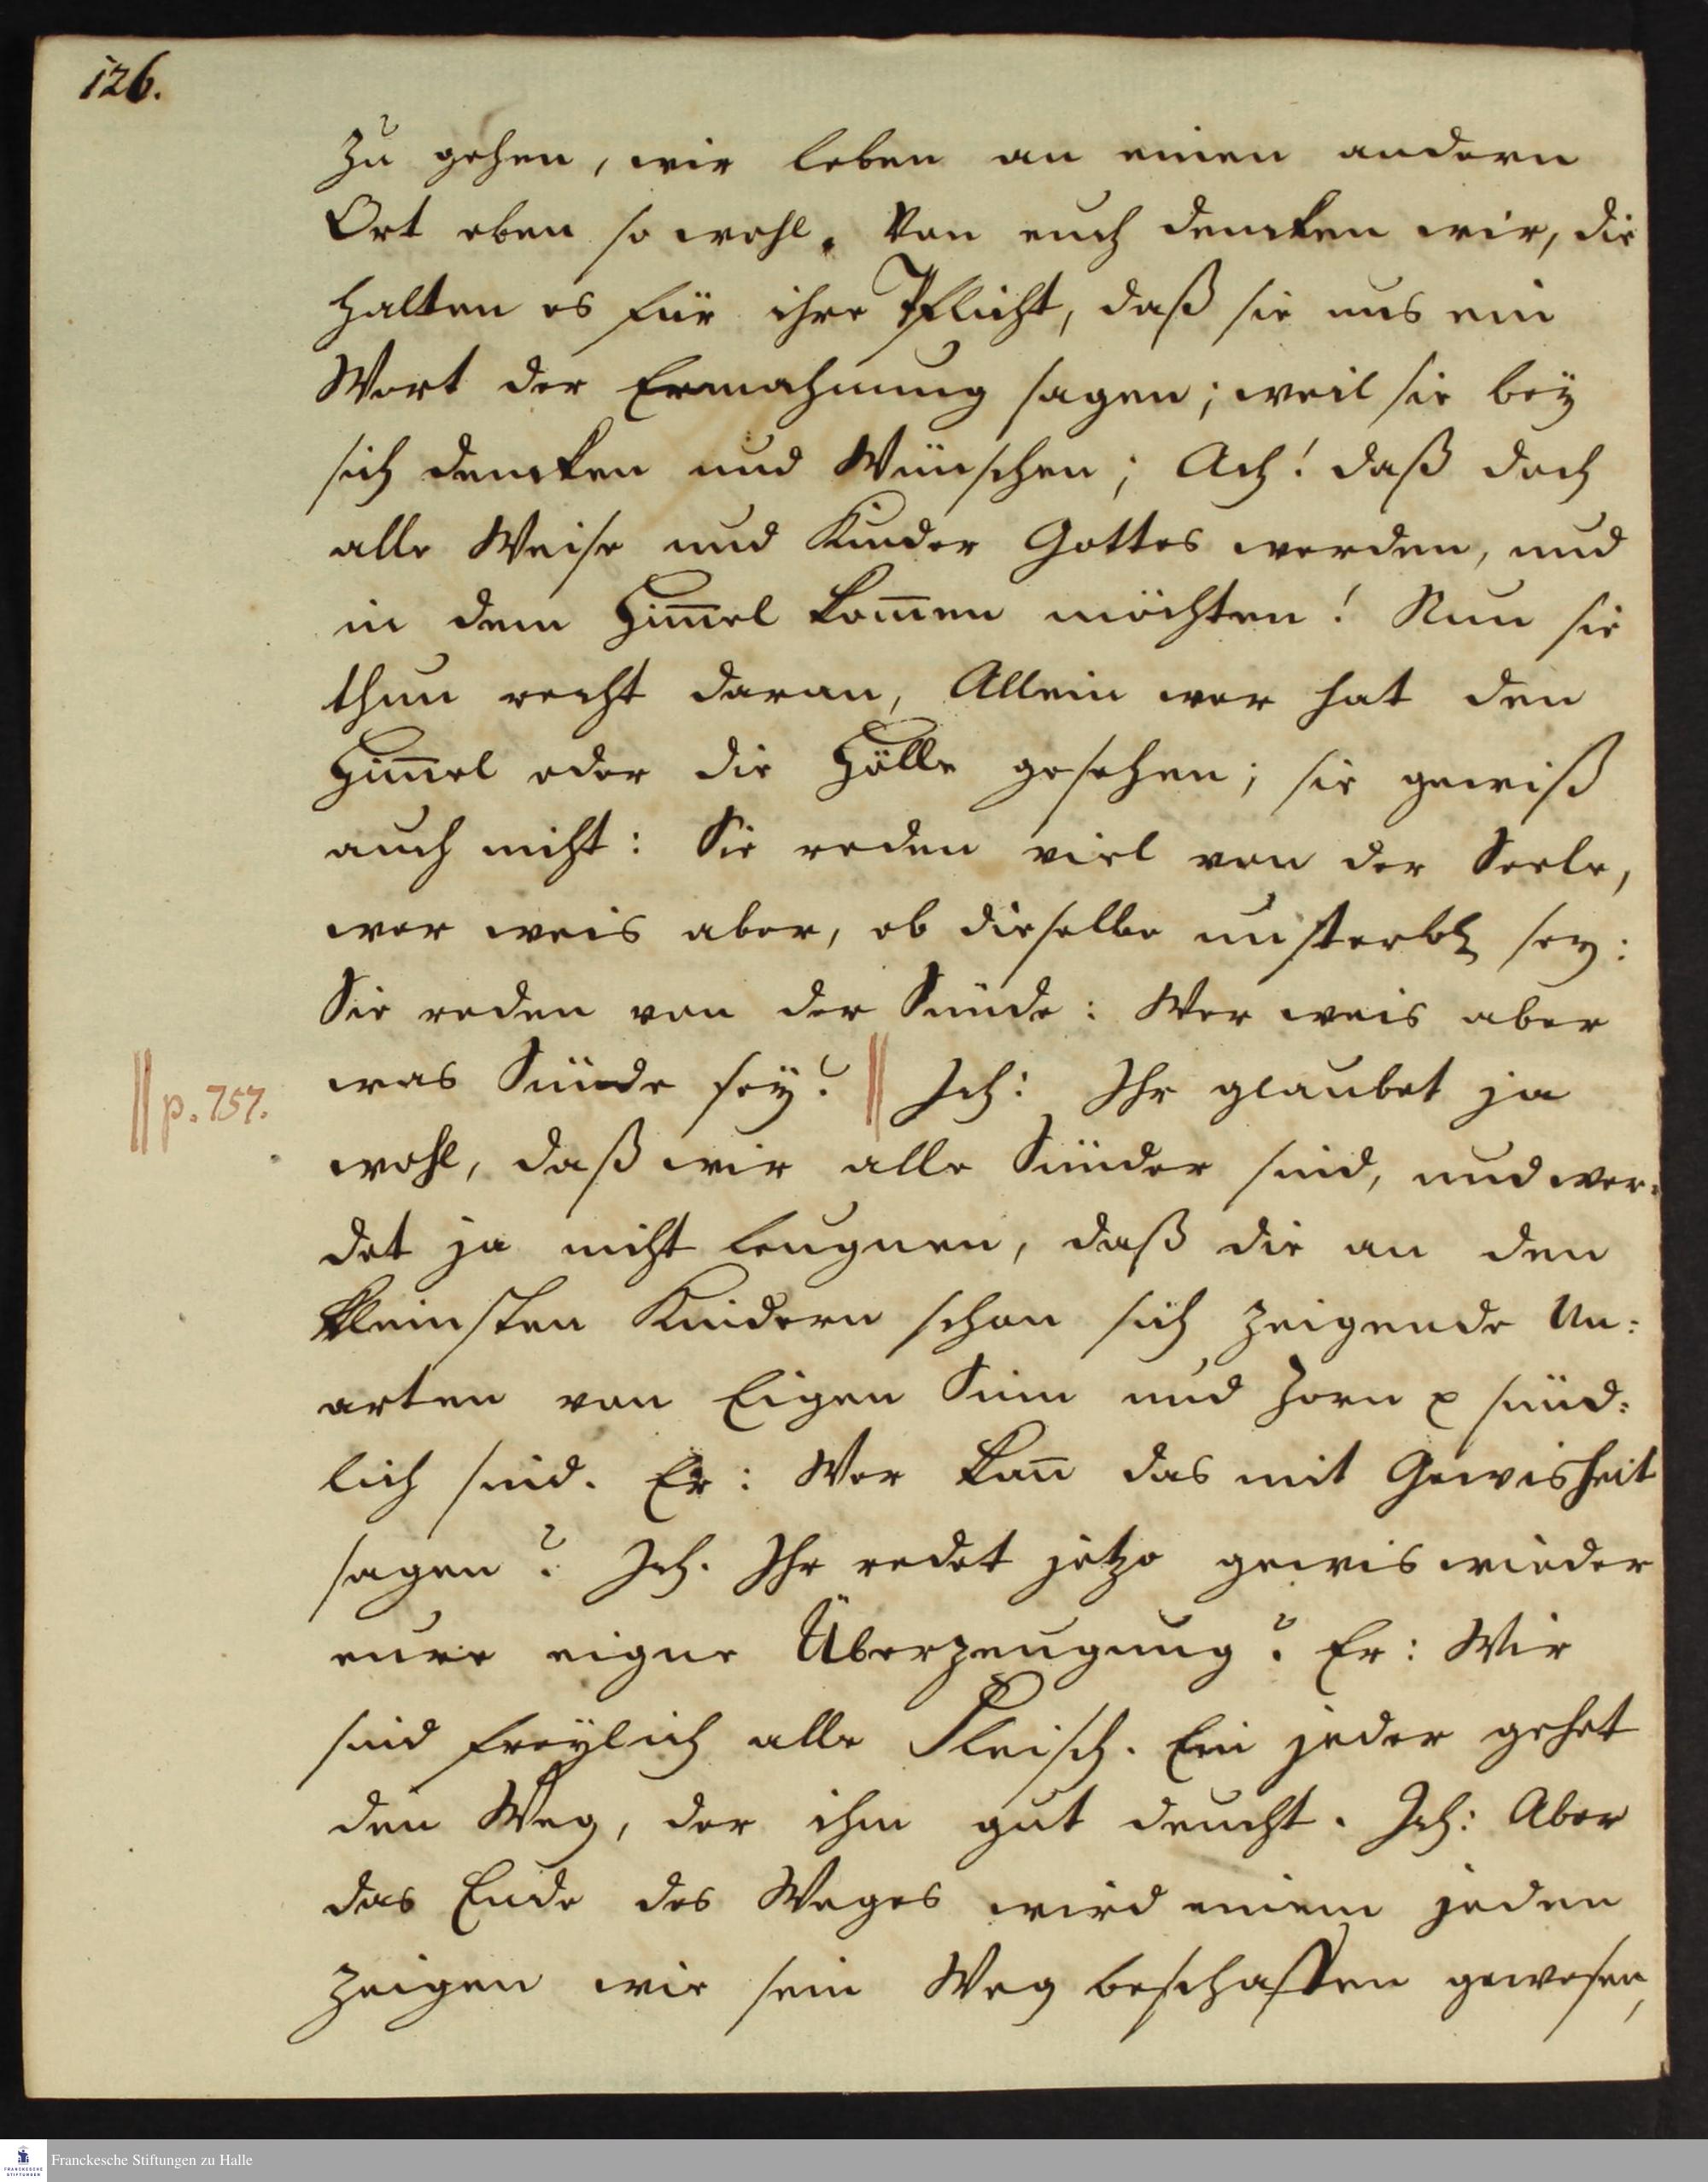 126.
zu gehen, wir leben an einen andern
Ort eben so wohl. Von euch dencken wir, die
halten es für ihre Pflicht, daß sie uns ein
Wort der Ermahnung sagen; weil sie beÿ
sich dencken und Wünschen; Ach! daß doch
alle Weise und Kinder Gottes werden, und
in dem Him̅el kom̅en möchten! Nun sie
thun recht daran, Allein wer hat den
Him̅el oder die Hölle gesehen; sie gewiß
auch nicht: Sie reden viel von der Seele,
wer weis aber, ob dieselbe unsterbl sey:
Sie reden von der Sünde: Wer weis aber
was Sünde seÿ? || Ich: Ihr glaubet ja
|| p. 757.
wohl, daß wir alle Sünder sind, und wer=
det ja nicht leugnen, daß die an den
kleinsten Kindern schon sich zeigende Un=
arten von Eigen Sinn und Zorn p sünd=
lich sind. Er: Wer kan̅ das mit Gewisheit
sagen? Ich. Ihr redet jetzo gewis wieder
eure eigne Überzeugung? Er: Wir
sind freÿlich alle Fleisch. Ein jeder gehet
den Weg, der ihm gut deucht. Ich: Aber
das Ende des Weges wird einem jeden
zeigen wie sein Weg beschaffen gewesen,
Franckesche Stiftungen zu Halle
FRANCKESCHE
STIFTUNGEN